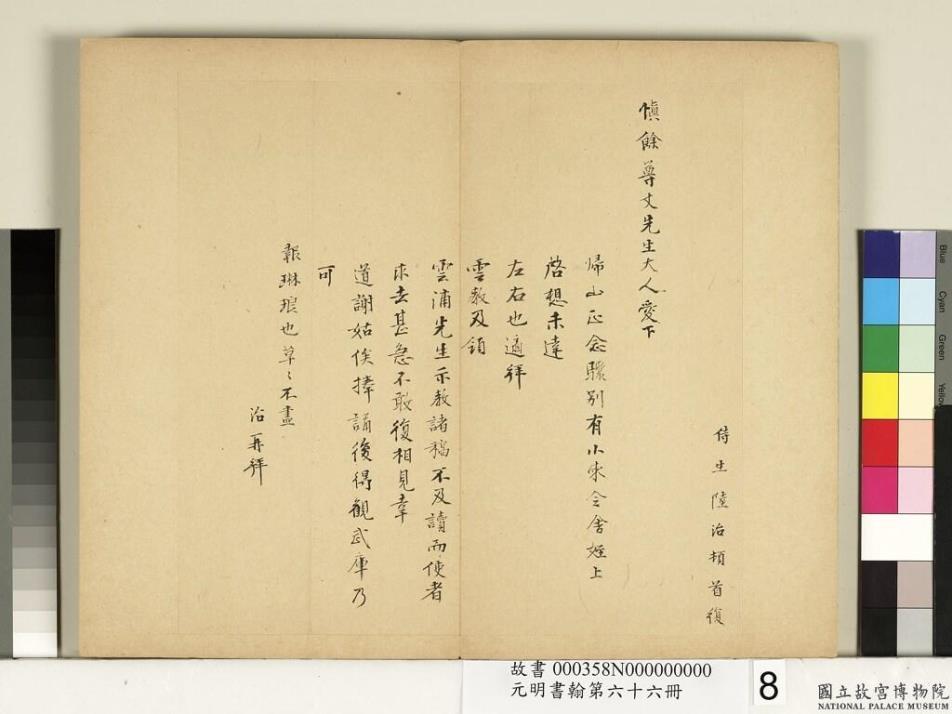 侍生陸治頓首復
慎餘尊丈先生大人愛下
歸山正念驟別有小柬令舍姪上
啓想未達
左右也適拜
雲教及領
雲浦先生示教諸稿不及讀而使者
求去甚急不敢復相見幸
道謝姑俟捧誦後得觀武庫乃
可
報琳琅也草〻不盡
治再拜
故書 000358N000000000
元明書翰第六十六冊
8
國立故宮博物院
NATIONAL PALACE MUSEUM
Blue
Cyan
Green
Yellow